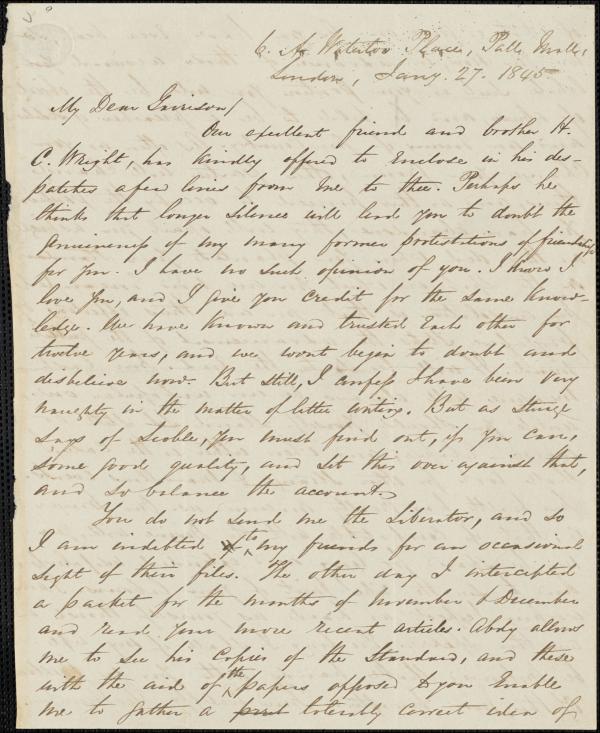 6. Waterloo Place, Pall Mall,
London, Jany. 27. 1845
My Dear Garrison/
Our excellent friend and brother H.
C. Wright, has kindly offered to enclose in his des-
patches a few lines from me to thee. Perhaps he
thinks that longer silence will lead you to doubt the
genuineness of my many former protestations of friendship
for you. I have no such opinion of you. I know I
love you, and I give you credit for the same know-
ledge. We have known and trusted each other for
twelve years, and we wont begin to doubt and
disbelieve now. But still, I confess I have been very
naughty in the matter of letter writing. But as Sturge
says of Scoble, you must find out, if you can,
some good quality, and set this over against that,
and so balance the account.
You do not send me the Liberator, and so
I am indebted to my friends for an occasional
sight of their files. The other day I intercepted
a packet for the months of November & December
and read your more recent articles. Abdy allows
me to see his copies of the Standard, and these
with the aid of the papers opposed to you enable
me to gather a tolerably correct idea of